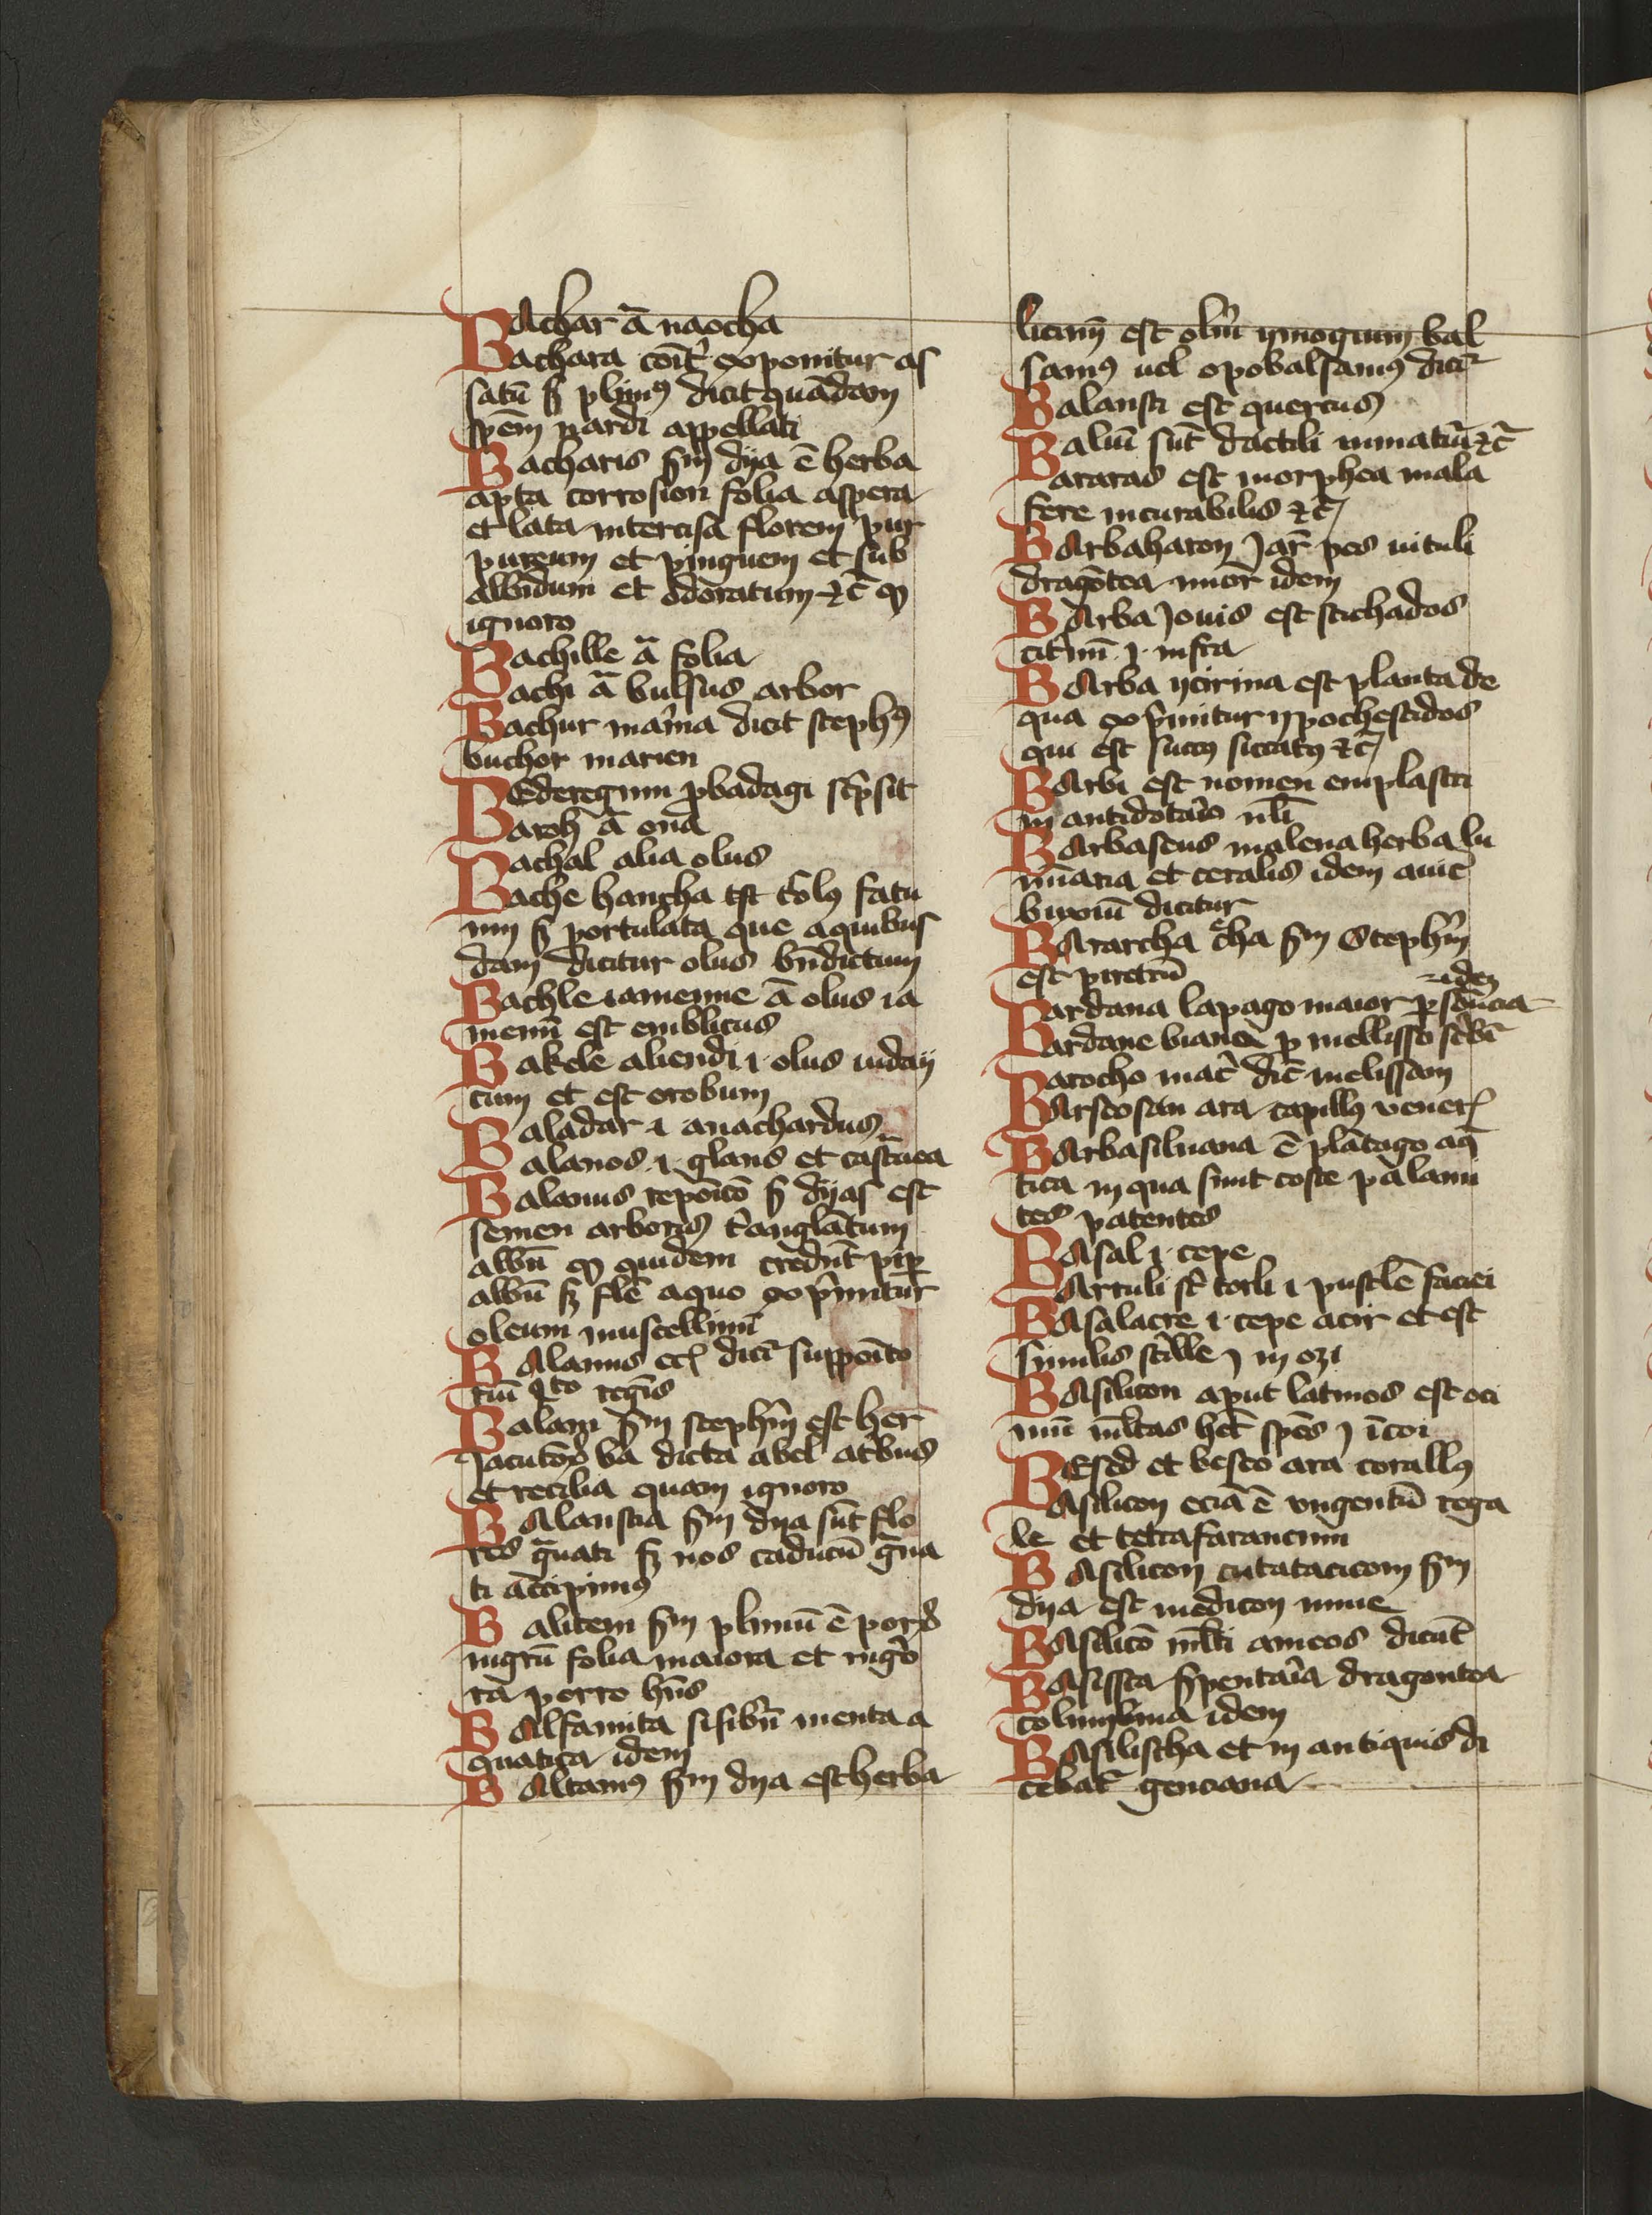 BAchar ā naocha
Bachara cōit̉ exponitur as
satū s̄ pliniꝰ dicit quādam
spēm nardi appellati
Bacharis sm̄ dya ē herba
apta corrosion folia aspera
et lata intercisa florem pur
pureum et pinguem et sub
albidum et odoratum ⁊c̄ ꝙ
ignoro
Bachille ā folia
Bachi ā bulsus arbor
Bachur mar̄ina dicit stephꝰ
buchor marien
BEderegum ꝓbadagi sc̉psit
Baroh ā ona
Bachal alia olus
Bache hancha est c̄olꝰ fatu
um s̄ portulata que aquibus
dam dicitur olus bn̄dictum
Bachle iamenne ā olus ia
menū est emblicus
Bakele aliendi .i. olus iuday
cum et est orobum
Baladar .i. anachardus
Balanos .i. glans et castānea
Balanus repōico s̄ dyas est
semen arboris t̉anglātum
albū ꝙ quidem credūt pip̄
albū sꝫ flē aquo exp̉mitur
oleum muscellinū
BAlanus ec̄ dicit̉ suppoīto
riū q̉to regīs
Balam sm̄ stephm̄ est her
Jacutōꝝ ba dicta abel at̉bus
et recilia quam ignoro
BAlaustia sm̄ dya sūt flo
res g̉nati sꝫ nos caducū g̉na
ti accipimꝰ
Balitem sm̄ pliniū ē porꝰ
nigrū folia maiora et nigꝛo
ra porro hn̄s
BAlsamita sisibrū menta a
quatica idem
BAltamꝰ sm̄ dya est herba
licinū est olm̄ ymogium bal
samꝰ uel opobalsamꝰ dicit̉
Balausti est quercus
Baluī sūt dactili inmatur̄ ⁊c̄
Bararas est morphea mala
fere incurabilis ⁊c̄
BArbaharon Jar̄ pes uituli
dragōtea minor idem
BArba Jouis est stichados
cit̉inū .i. infra
BArba ycirina est planta de
qua exp̉mitur ypochestidos
qui est succꝰ siccatꝰ ⁊c̄
BArbi est nomen emplastri
in antidotar̉o nl̄i
BArbascus malena herba lu
mīaria et ceralis idem auic̄
buxiū dicitur
BArarcha c̄ha sm̄ Stephm̄
est piretrū
Bardana lapago maior ꝑsonacia idem
Bardane biana ꝑ mellisso sc̉bit̉
Barocho mac̉ dic̄ melissam
BArseosan ara capillꝰ vener̄
BArbasiluana ē plātago aq̄
tica in qua sunt coste palam
tes patentes
BAsal .i. cepe
BArtuli st̄ torli .i. pustlē faciei
BAsalacre .i. cepe acir et est
similis sc̉lle .i. in ozi
BAsilicon aput latinos est oci
mū m̄ltas het̄ spēs .i. īcoi
BEsed et besco ara corallꝰ
BAsilicon ecīa ē vngentū rega
le et tetrafaracum
BAsilicon cutatacicom sm̄
dya est medicon mine
BAsilico m̄lti ameos dicūt
BAsissca s̄pentar̄ia dragontea
columbina idem
BAsilischa et in antiquis di
cebat̉ genciana